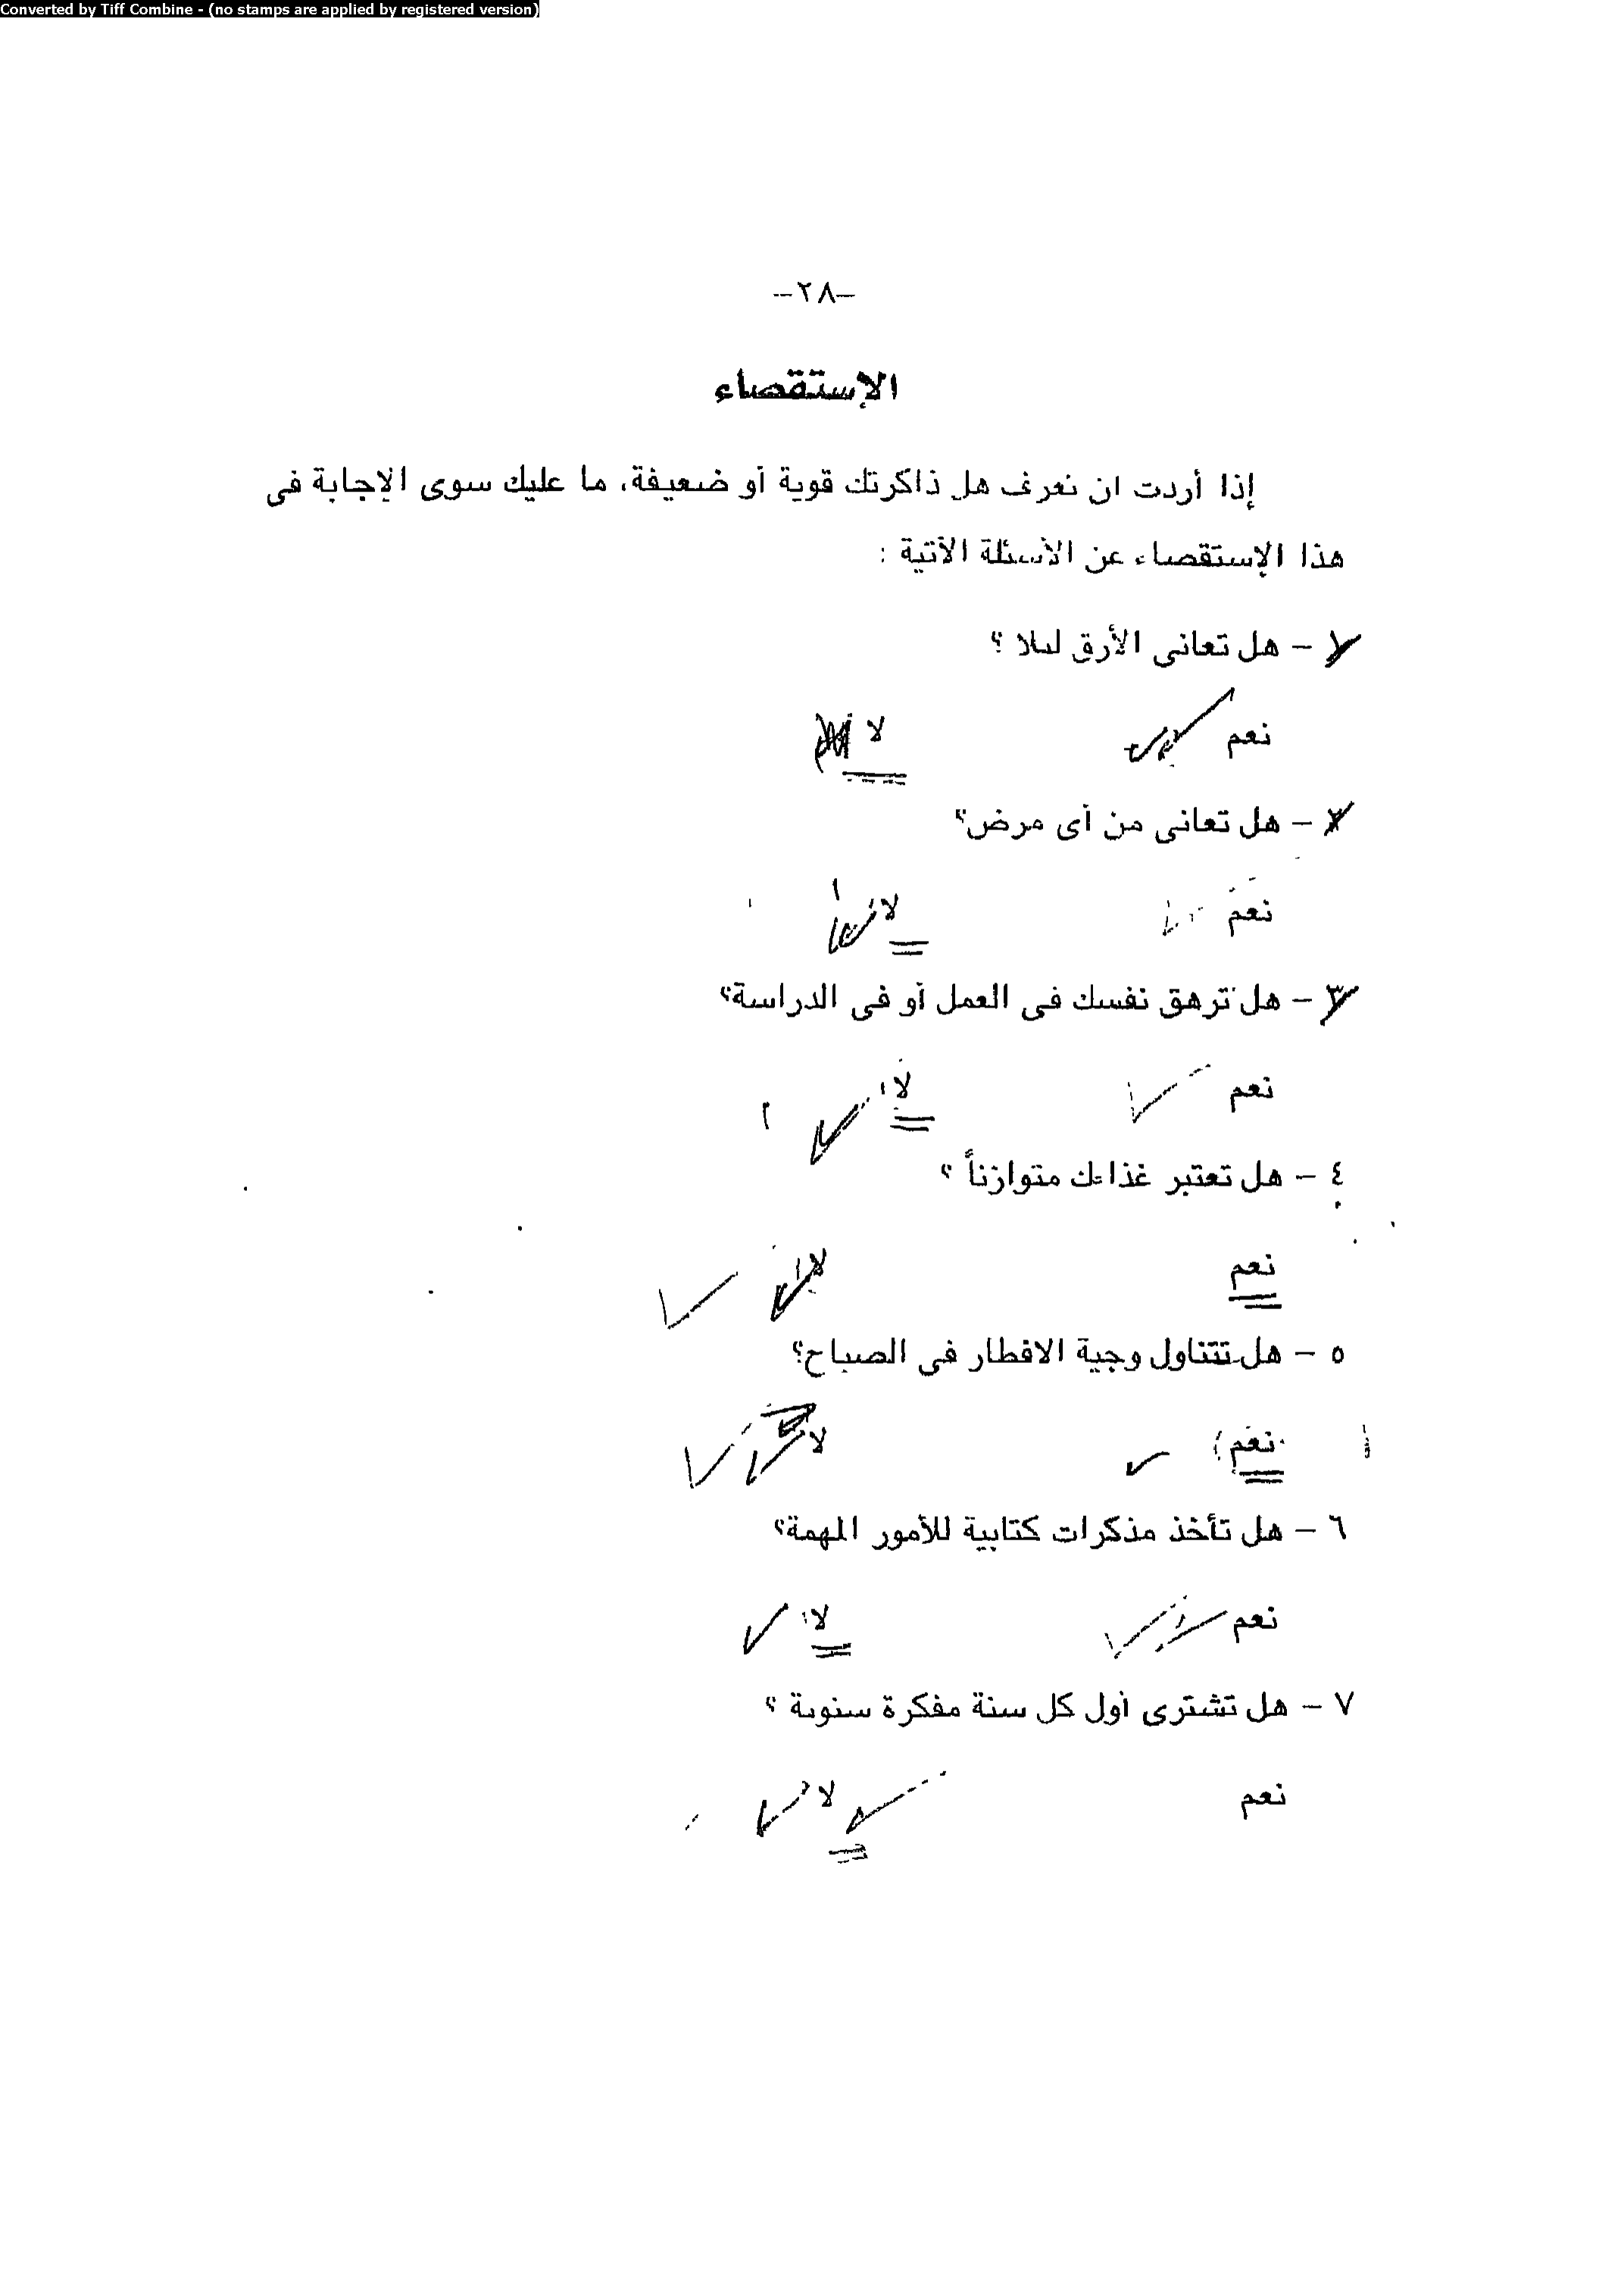 Converted by Tiff Combine - (no stamps are applied by registered version)
–٢٨–
الإستقصاء
إذا أردت ان نعرف هل ذاكرتك قوية أو ضعيفة، ما عليك سوى الإجابة فى
هذا الإستقصاء عن الأسئلة الآتية :
١ – هل تعانى الأرق ليلا ؟
نعم لا
٢ – هل تعانى من أى مرض؟
نعم لا
٣ – هل ترهق نفسك فى العمل أو فى الدراسة؟
نعم لا
٤ – هل تعتبر غذاءك متوازناً ؟
نعم لا
٥ – هل تتناول وجبة الافطار فى الصباح؟
نعم لا
٦ – هل تأخذ مذكرات كتابية للأمور المهمة؟
نعم لا
٧ – هل تشترى أول كل سنة مفكرة سنوية ؟
نعم لا